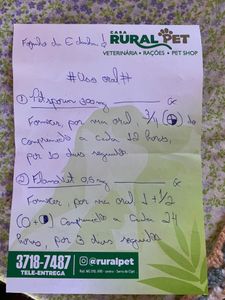 CASA
RURAL PET
VETERINÁRIA • RAÇÕES • PET SHOP
#Uso oral#
① 300mg
Fornecer, por via oral 3/4 do
comprimido a cada 12 horas,
por 10 dias seguidos
② 0,5mg
Fornecer, por via oral 1 + 1/2
comprimido a cada 24
horas, por 3 dias seguidos
3718-7487
TELE-ENTREGA
@ruralpet